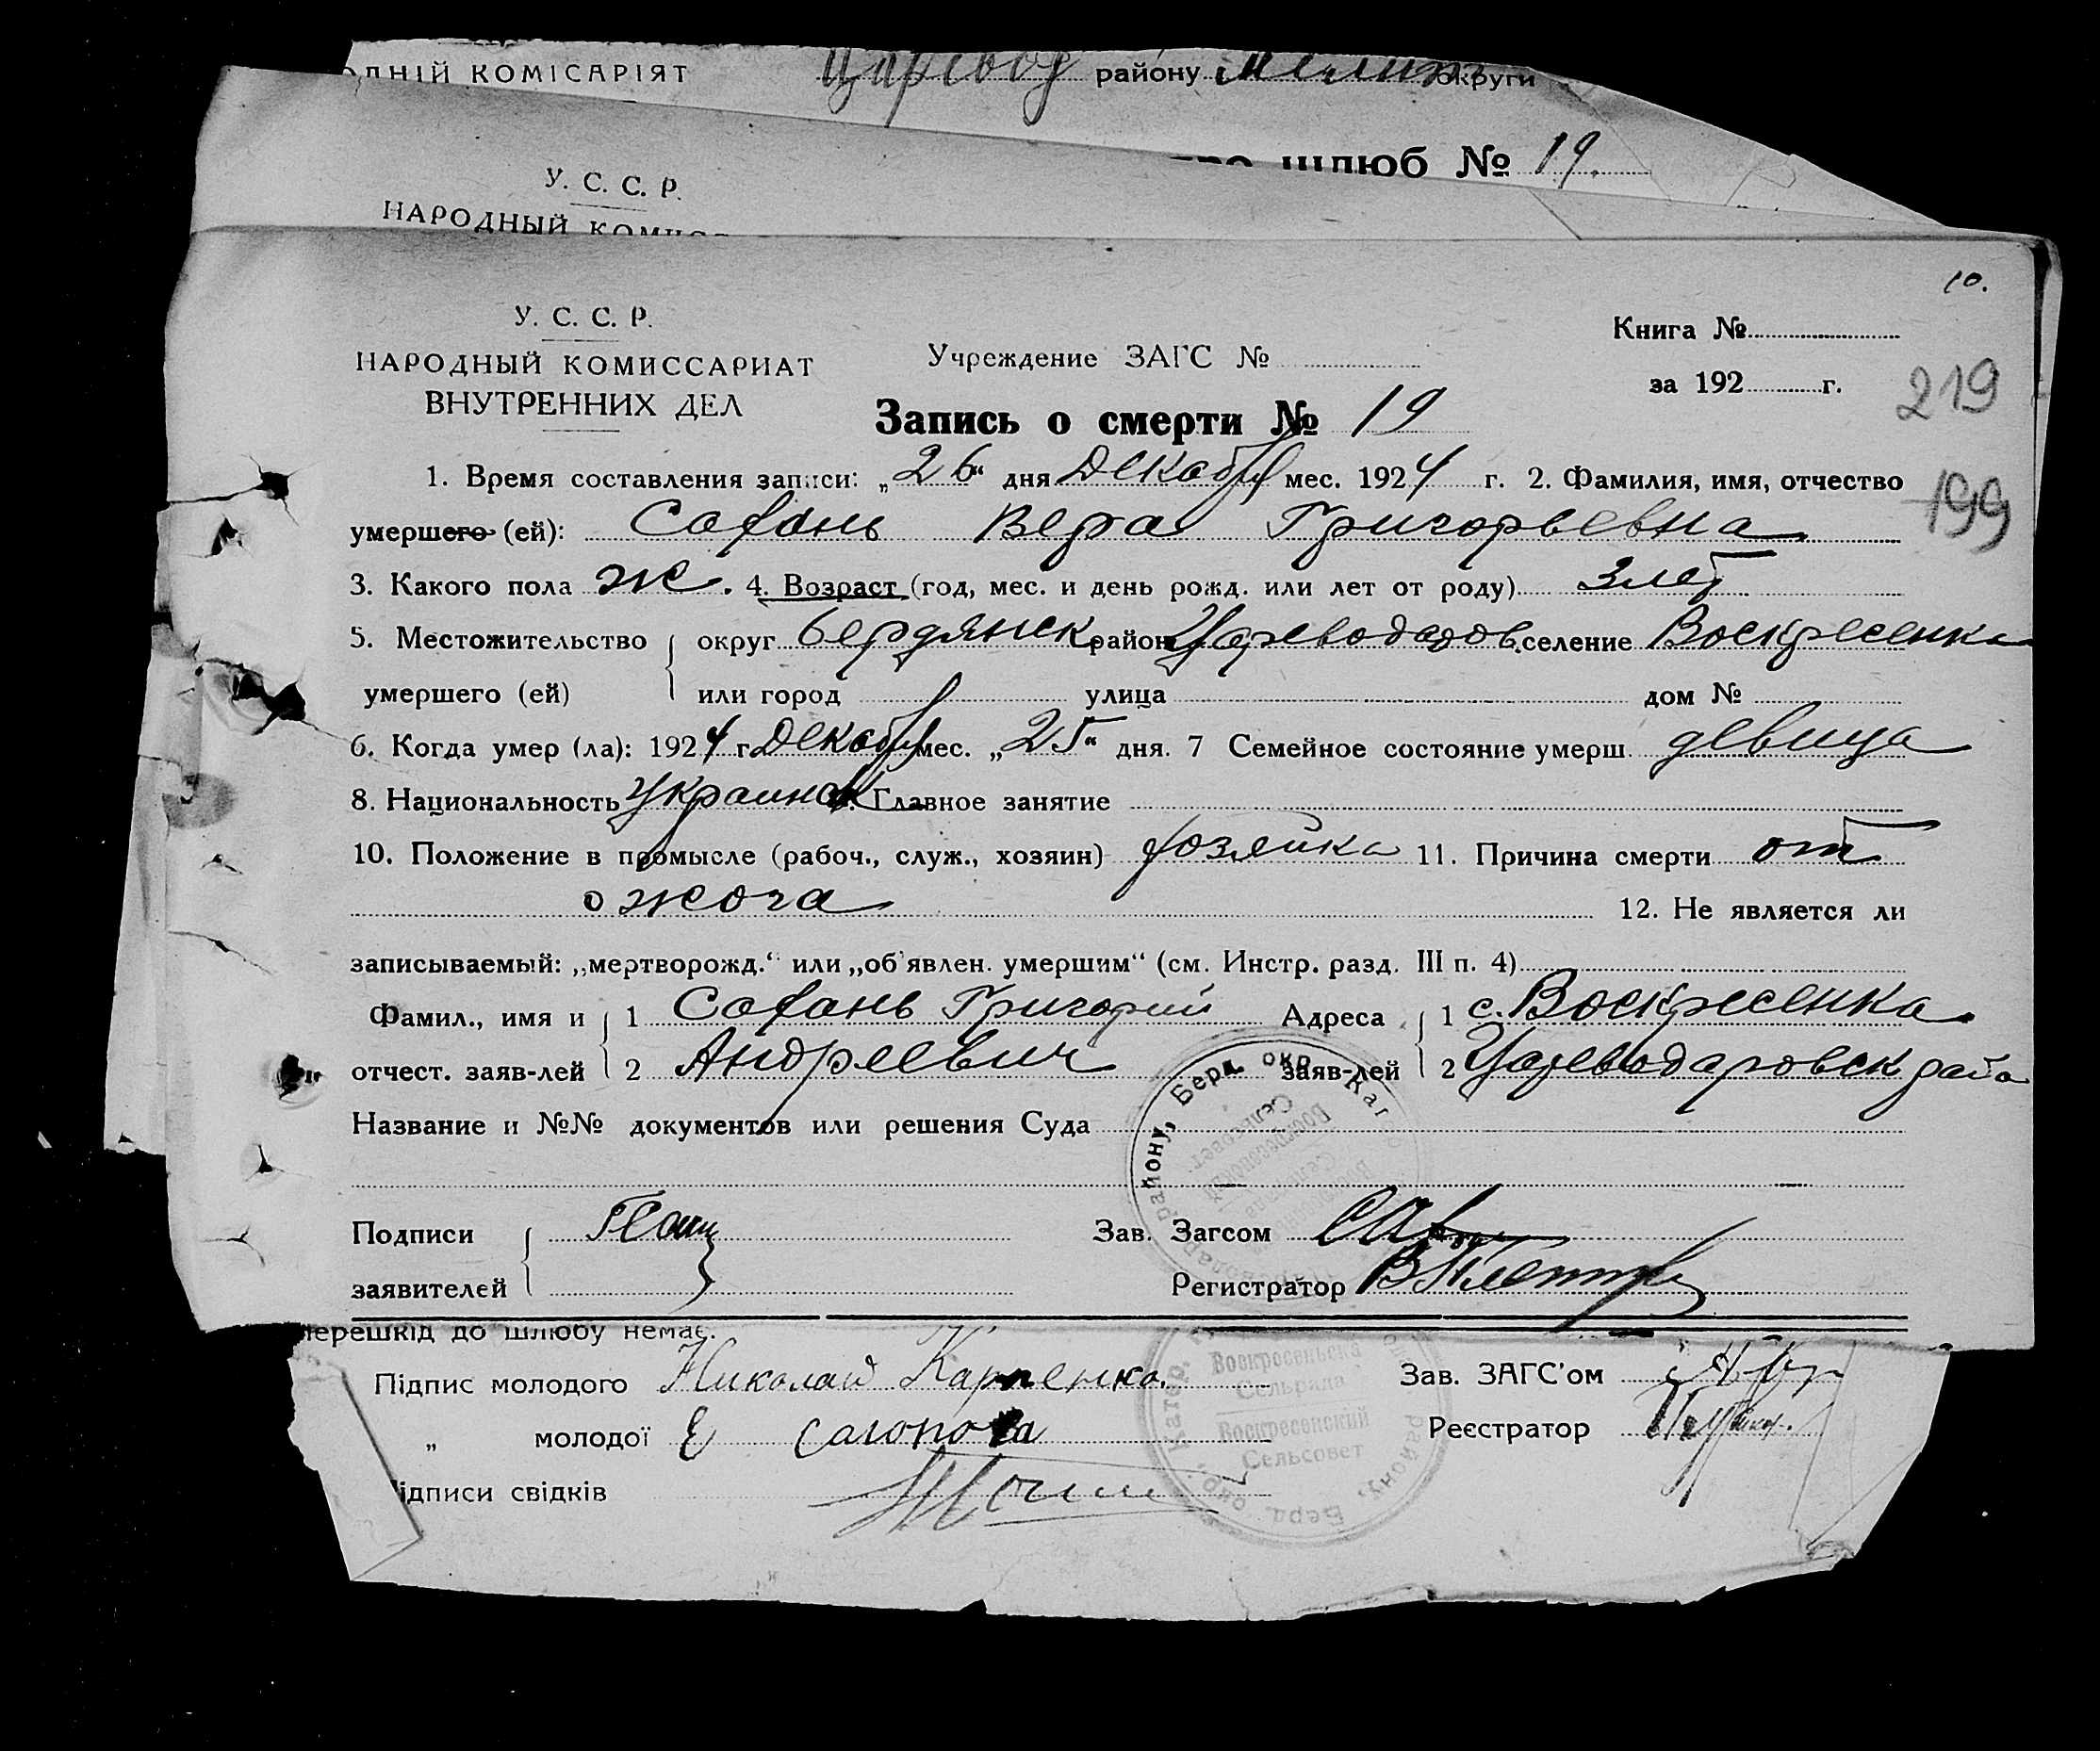 ОДНІЙ КОМІСАРІЯТ Царевод району Мелит округи
шлюб № 19.
У. С. С. Р.
НАРОДНЫЙ КОМИС
10.
У. С. С. Р.
НАРОДНЫЙ КОМИССАРИАТ
ВНУТРЕННИХ ДЕЛ
Учреждение ЗАГС №
Книга №
за 192 г.
219
199
Запись о смерти № 19
1. Время составления записи: „26“ дня Декабря мес. 1924 г. 2. Фамилия, имя, отчество
умершего (ей): Сахань Вера Григорьевна
3. Какого пола ж. 4. Возраст (год, мес. и день рожд. или лет от роду) 3 лет
5. Местожительство округ Бердянск район Цареводаров. селение Воскресенка
умершего (ей) или город улица дом №
6. Когда умер (ла): 1924 г. Декабря мес. „25“ дня. 7 Семейное состояние умерш. девица
8. Национальность Украинка Главное занятие
10. Положение в промысле (рабоч., служ., хозяин) хозяйка 11. Причина смерти от
ожога 12. Не является ли
записываемый: „мертворожд.“ или „об'явлен. умершим“ (см. Инстр. разд. III п. 4)
Фамил., имя и 1 Сахань Григорий Адреса 1 с. Воскресенка
отчест. заяв-лей 2 Андреевич заяв-лей 2 Цареводаровск райо
Название и №№ документов или решения Суда
району, Берд. окр. Кат
Воскресенский
Сельсовет
Подписи Зав. Загсом
заявителей Регистратор
перешкід до шлюбу немає.
Підпис молодого Николай Карпенко. Зав. ЗАГС'ом
„ молодої Е Реєстратор
ідписи свідків
Воскресеньска
Сельрада
Воскресенский
Сельсовет
району, Берд. окр. Катер.